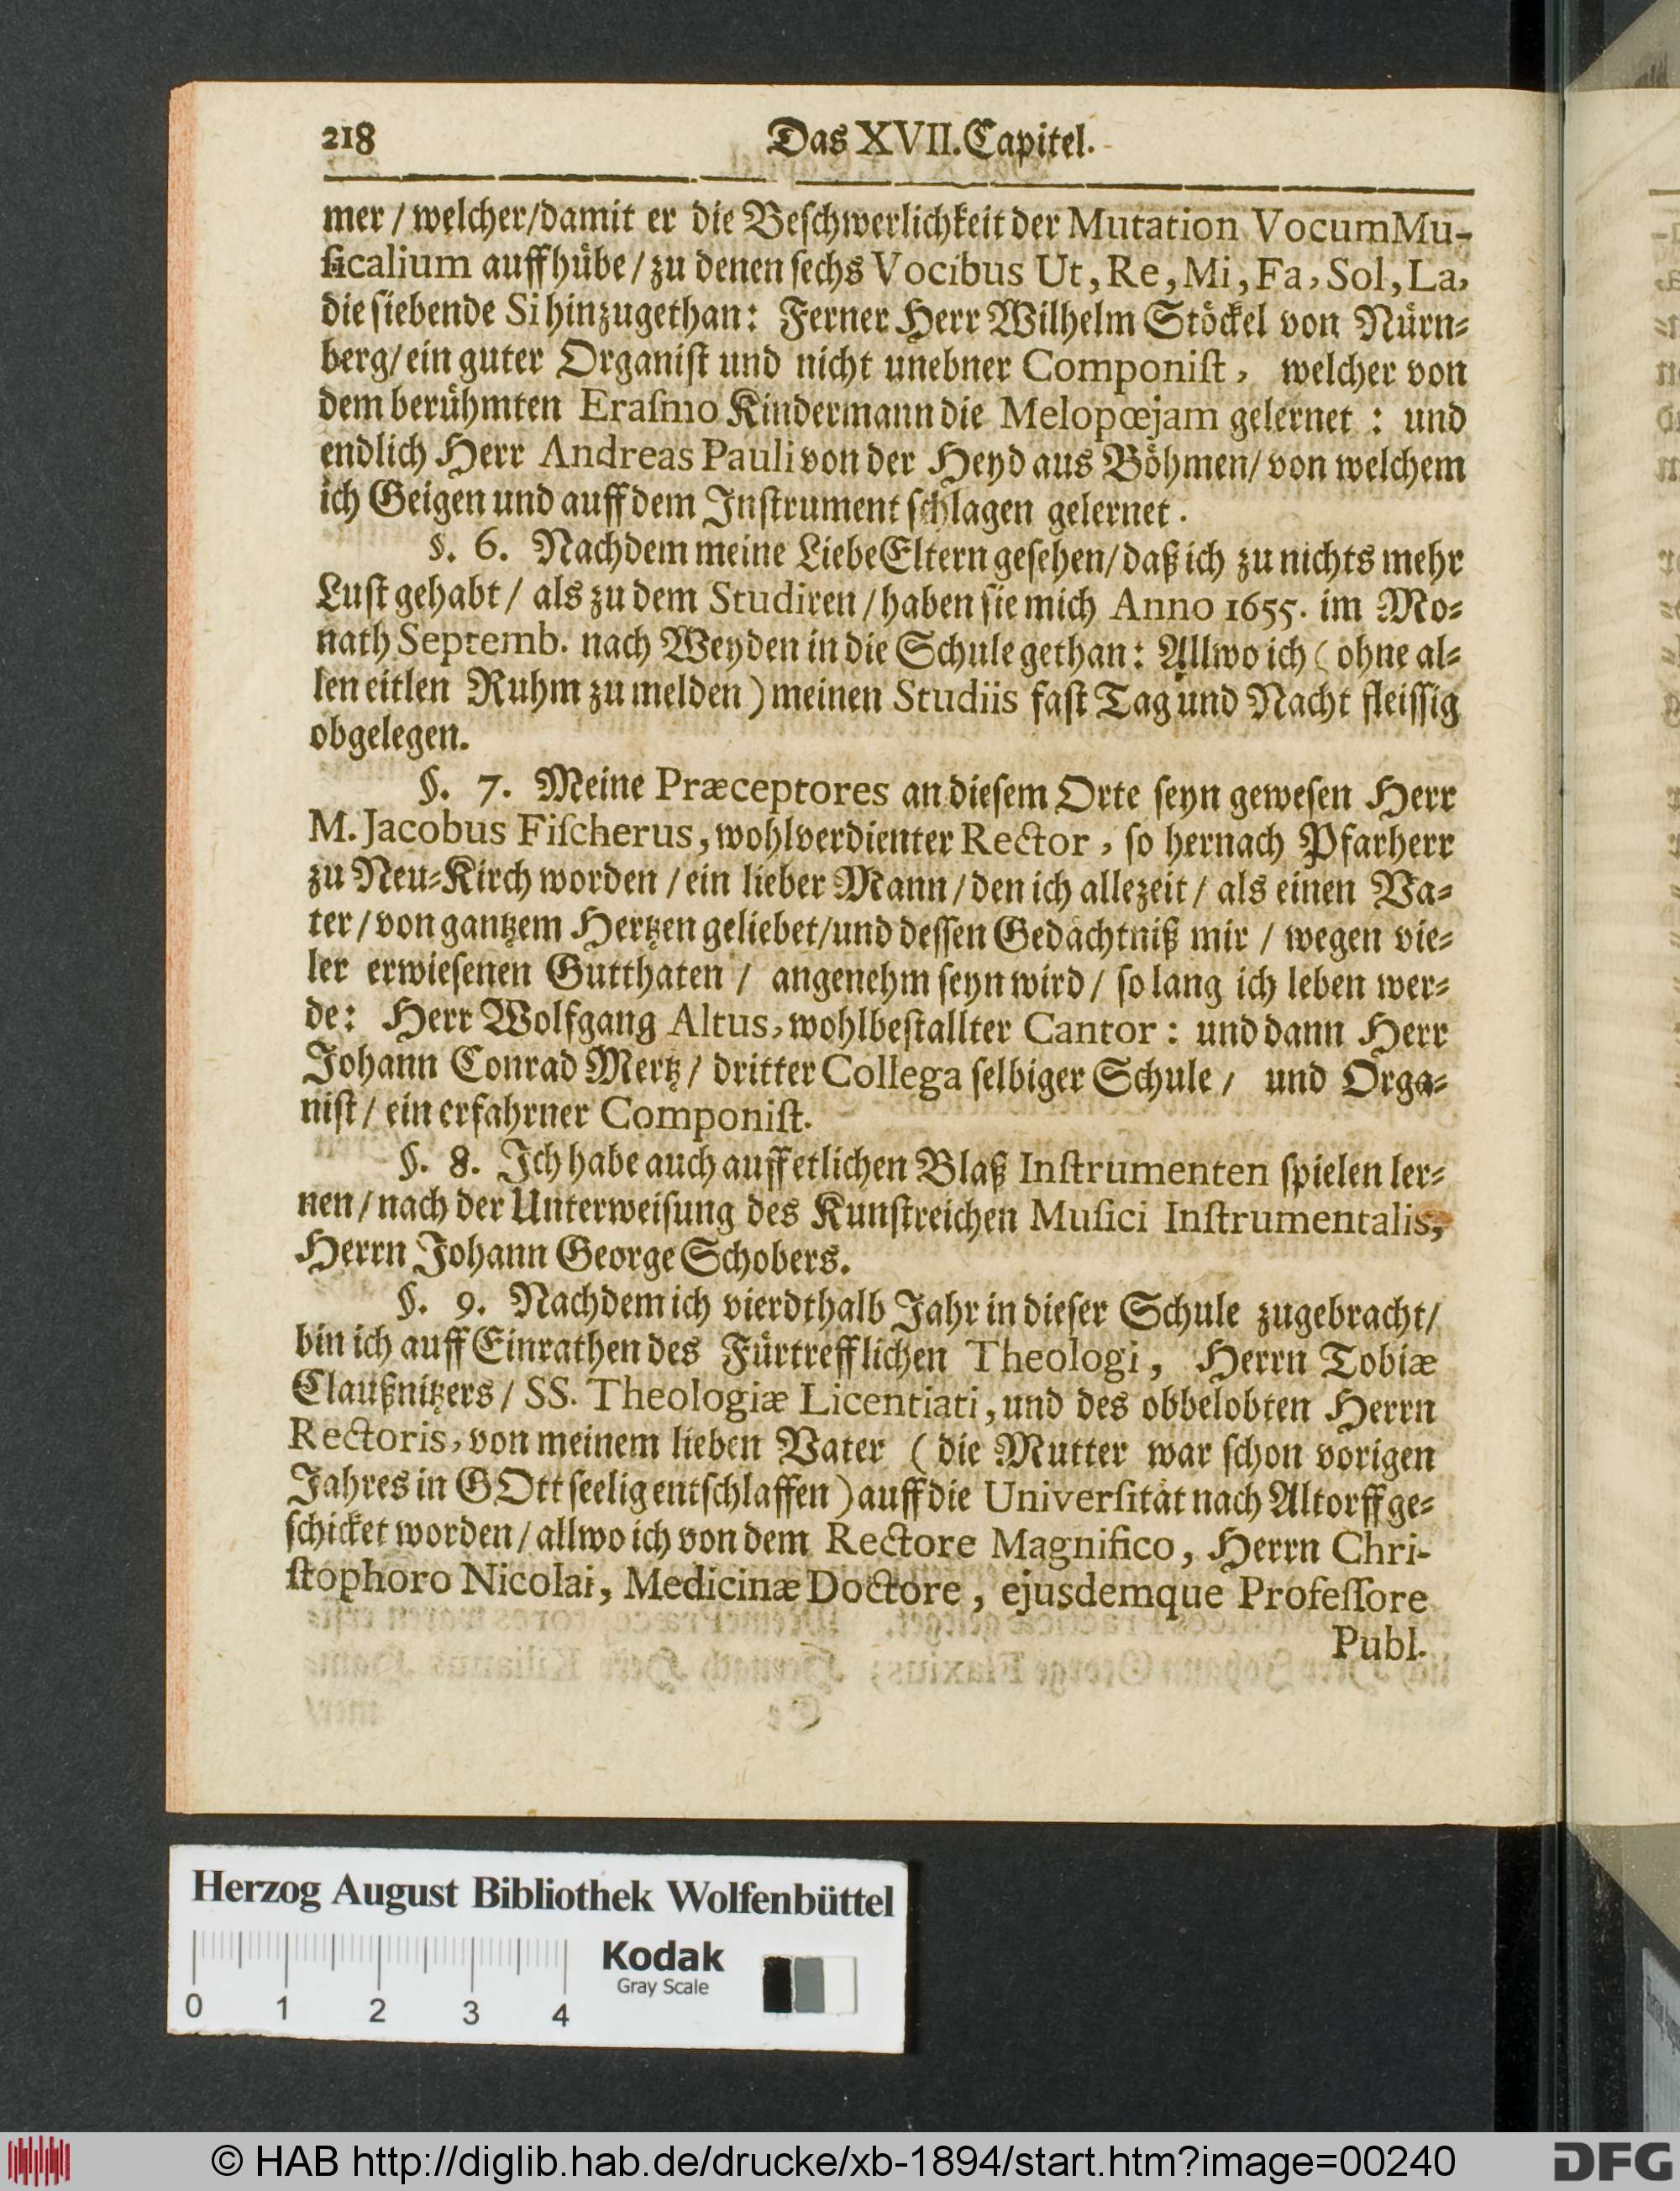 218 Das XVII. Capitel.
mer / welcher/damit er die Beschwerlichkeit der Mutation Vocum Mu-
sicalium auffhübe / zu denen sechs Vocibus Ut, Re, Mi, Fa, Sol, La,
die siebende Si hinzugethan: Ferner Herr Wilhelm Stöckel von Nürn-
berg/ ein guter Organist und nicht unebner Componist, welcher von
dem berühmten Erasmo Kindermann die Melopœjam gelernet : und
endlich Herr Andreas Pauli von der Heyd aus Böhmen/ von welchem
ich Geigen und auff dem Instrument schlagen gelernet.
§. 6. Nachdem meine Liebe Eltern gesehen/ daß ich zu nichts mehr
Lust gehabt / als zu dem Studiren / haben sie mich Anno 1655. im Mo-
nath Septemb. nach Weyden in die Schule gethan: Allwo ich ( ohne al-
len eitlen Ruhm zu melden ) meinen Studiis fast Tag und Nacht fleissig
obgelegen.
§. 7. Meine Præceptores an diesem Orte seyn gewesen Herr
M. Jacobus Fischerus, wohlverdienter Rector, so hernach Pfarherr
zu Neu-Kirch worden / ein lieber Mann / den ich allezeit / als einen Va-
ter / von gantzem Hertzen geliebet/ und dessen Gedächtniß mir / wegen vie-
ler erwiesenen Gutthaten / angenehm seyn wird / so lang ich leben wer-
de: Herr Wolfgang Altus, wohlbestallter Cantor : und dann Herr
Johann Conrad Mertz / dritter Collega selbiger Schule / und Orga-
nist / ein erfahrner Componist.
§. 8. Ich habe auch auff etlichen Blaß Instrumenten spielen ler-
nen / nach der Unterweisung des Kunstreichen Musici Instrumentalis,
Herrn Johann George Schobers.
§. 9. Nachdem ich vierdthalb Jahr in dieser Schule zugebracht/
bin ich auff Einrathen des Fürtrefflichen Theologi, Herrn Tobiæ
Claußnitzers / SS. Theologiæ Licentiati, und des obbelobten Herrn
Rectoris, von meinem lieben Vater ( die Mutter war schon vorigen
Jahres in GOtt seelig entschlaffen ) auff die Universität nach Altorff ge-
schicket worden / allwo ich von dem Rectore Magnifico, Herrn Chri-
stophoro Nicolai, Medicinæ Doctore, ejusdemque Professore
Publ.
Herzog August Bibliothek Wolfenbüttel
Kodak
Gray Scale
0 1 2 3 4
© HAB http://diglib.hab.de/drucke/xb-1894/start.htm?image=00240
DFG